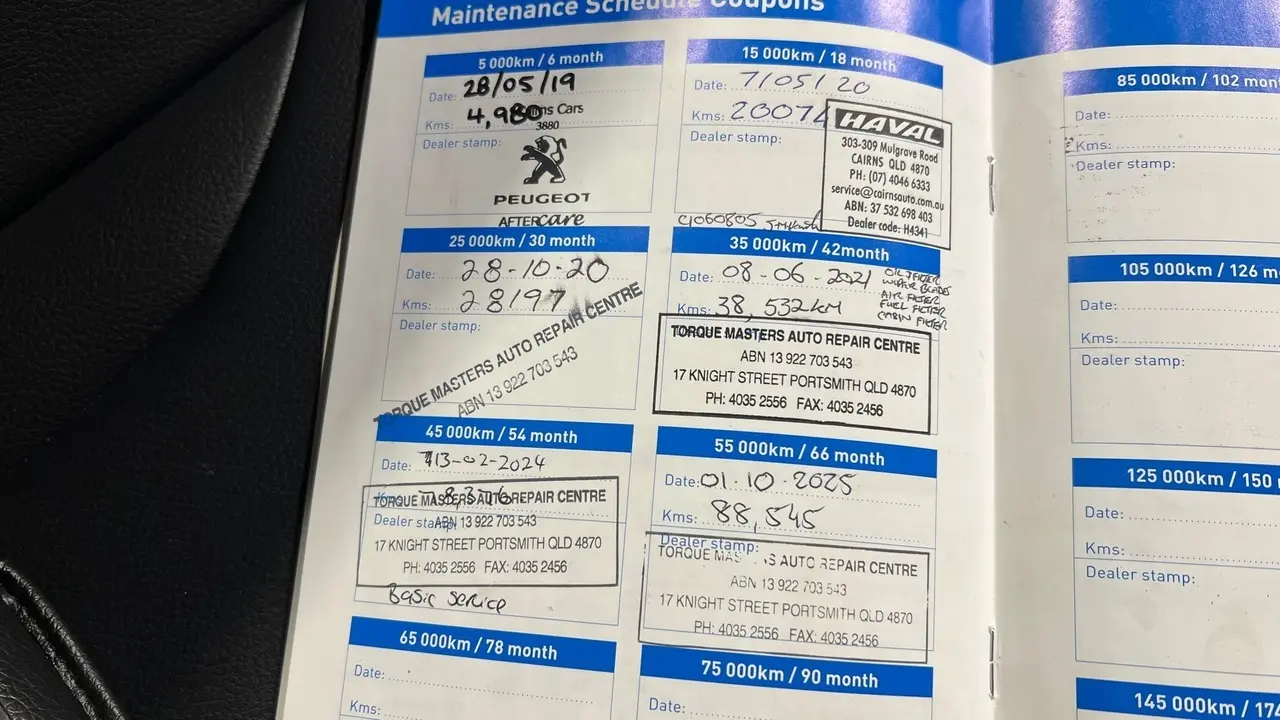 Maintenance Schedule Coupons
5 000km / 6 month
Date: 28/05/19
Kms: 4,980
Cars
3880
Dealer stamp:
PEUGEOT
AFTERcare
15 000km / 18 month
Date: 7/05/20
Kms: 20071
Dealer stamp:
HAVAL
303-309 Mulgrave Road
CAIRNS QLD 4870
PH: (07) 4046 6333
service@cairnsauto.com.au
ABN: 37 532 698 403
Dealer code: H4341
25 000km / 30 month
Date: 28-10-20
Kms: 28197
Dealer stamp:
TORQUE MASTERS AUTO REPAIR CENTRE
ABN 13 922 703 543
35 000km / 42month
Date: 08-06-2021
Kms: 38,532km
OIL FILTER
WIPER BLADES
AIR FILTER
FUEL FILTER
CABIN FILTER
TORQUE MASTERS AUTO REPAIR CENTRE
ABN 13 922 703 543
17 KNIGHT STREET PORTSMITH QLD 4870
PH: 4035 2556 FAX: 4035 2456
45 000km / 54 month
Date: 13-02-2024
TORQUE MASTERS AUTO REPAIR CENTRE
Dealer stamp:
ABN 13 922 703 543
17 KNIGHT STREET PORTSMITH QLD 4870
PH: 4035 2556 FAX: 4035 2456
Basic Service
55 000km / 66 month
Date: 01.10.2025
Kms: 88,545
Dealer stamp:
TORQUE MAS S AUTO REPAIR CENTRE
ABN 13 922 703 543
17 KNIGHT STREET PORTSMITH QLD 4870
PH: 4035 2556 FAX: 4035 2456
65 000km / 78 month
Date:
Kms:
75 000km / 90 month
Date:
85 000km / 102 mon
Date:
Kms:
Dealer stamp:
105 000km / 126 m
Date:
Kms:
Dealer stamp:
125 000km / 150
Date:
Kms:
Dealer stamp:
145 000km / 174